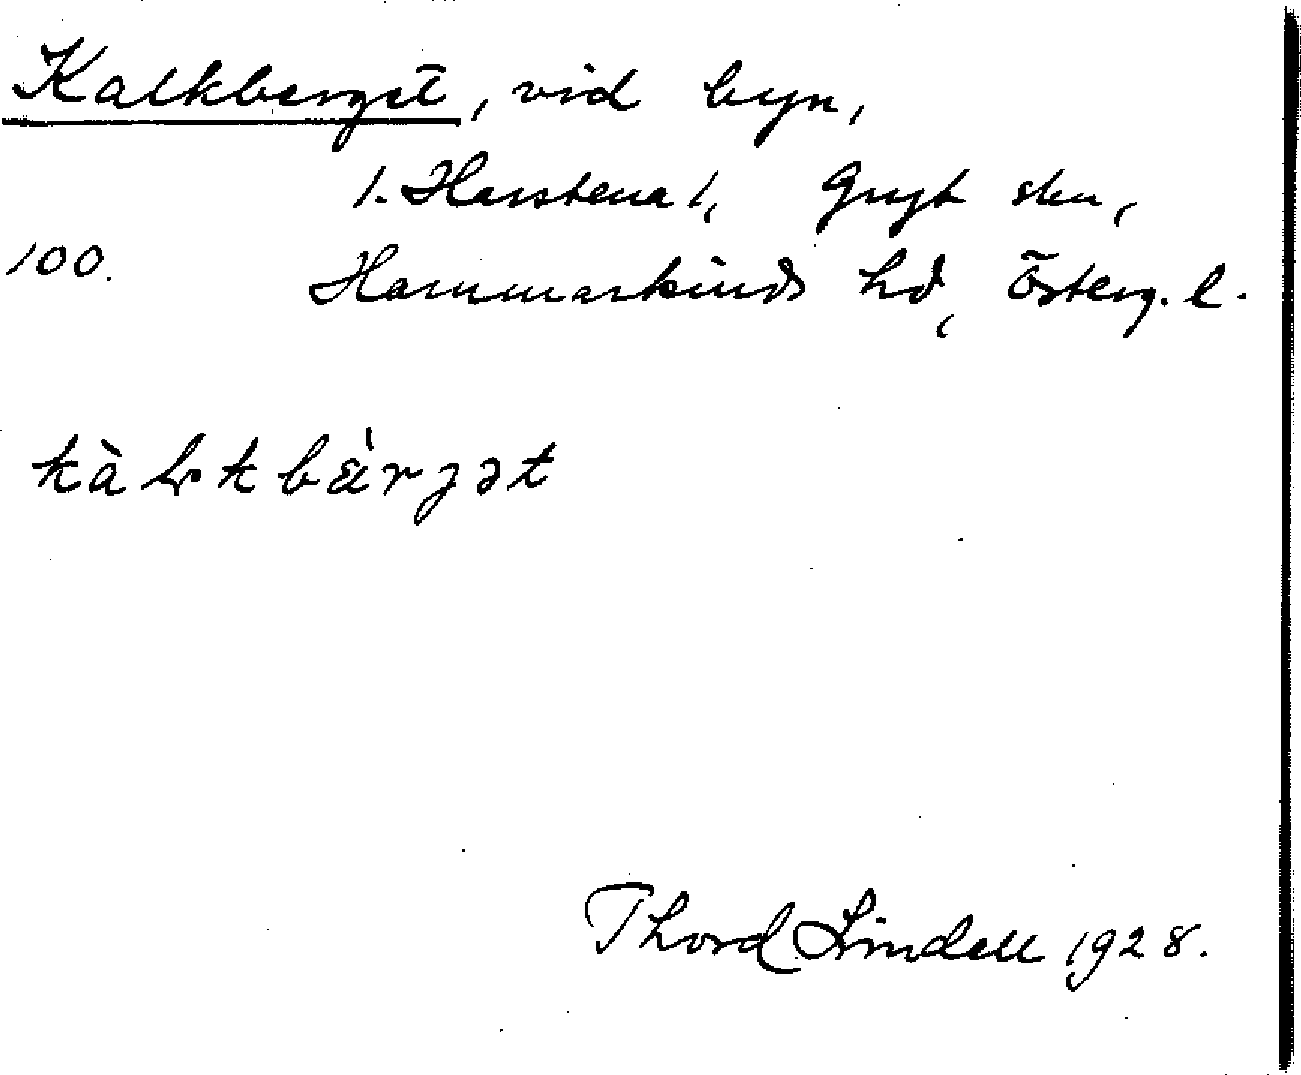 Kalkberget, vid byn,
1. Harstena 1, Gryt skn,
100. Hammarkinds hd, Österg. l.
kàḷkbä̀rjət
Thord Lindell 1928.